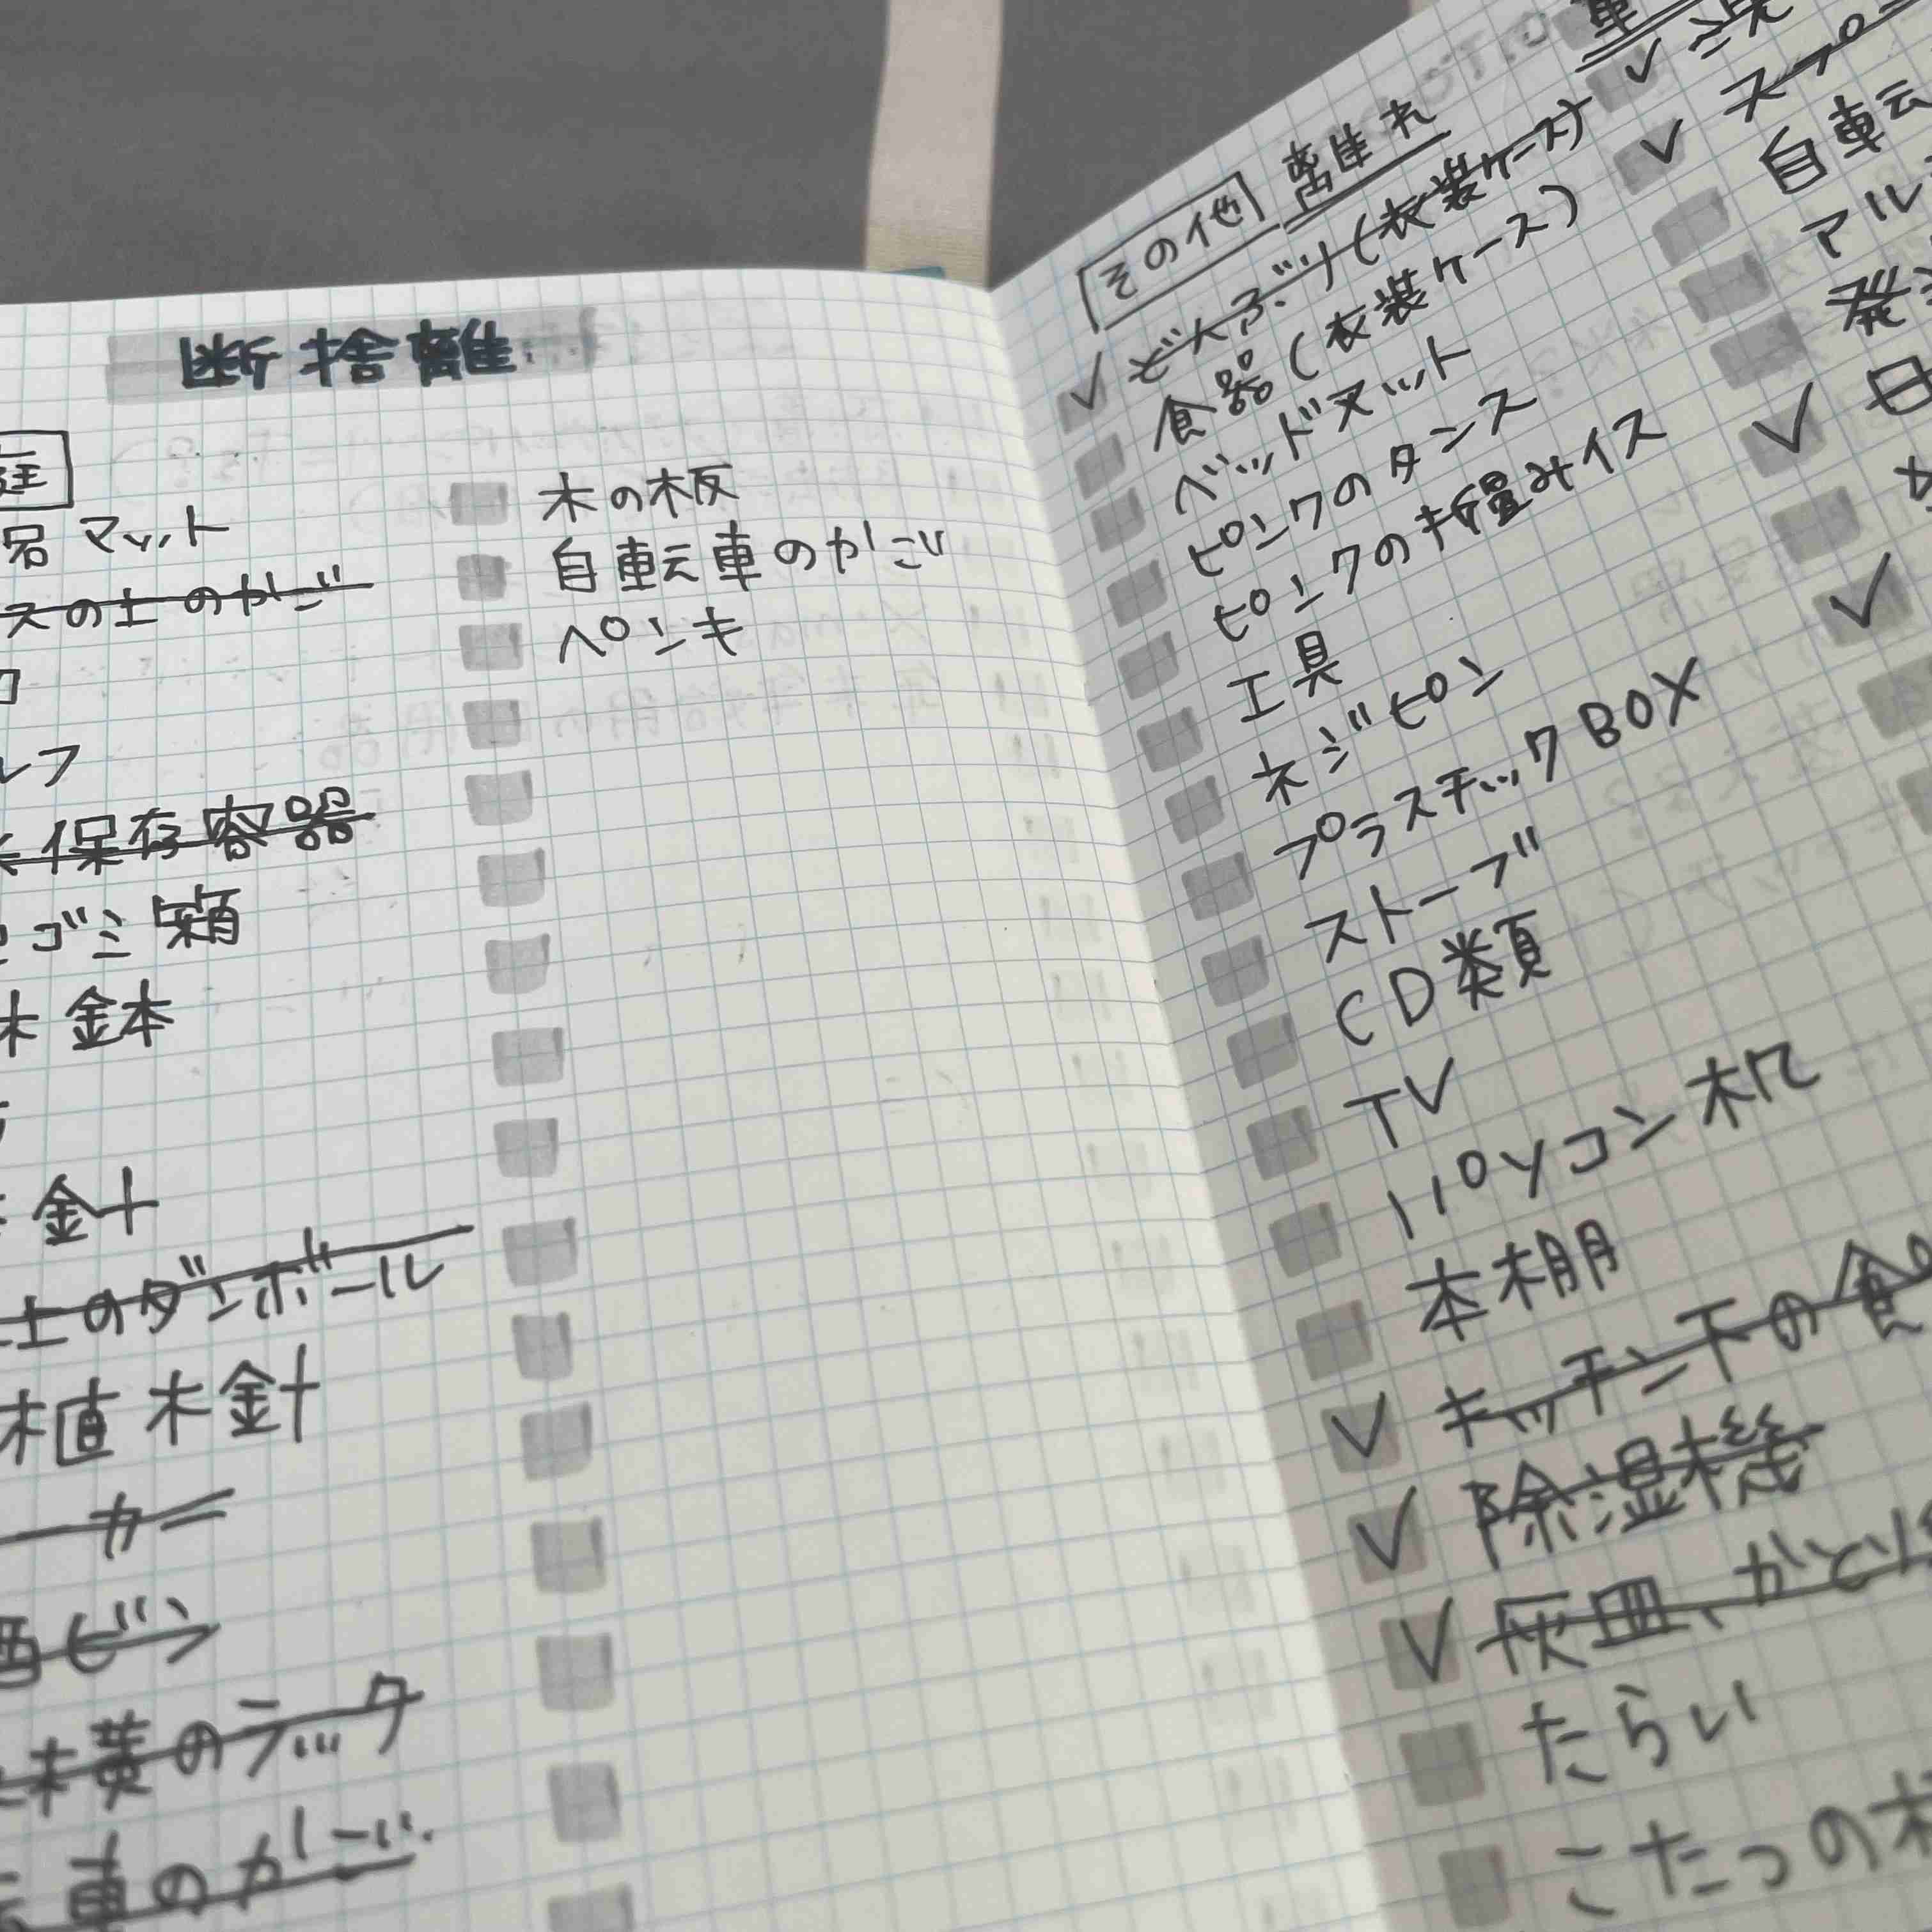 断捨離
庭
マット
スの土のかご
保存容器
ゴミ箱
木鉢
針
土のダンボール
植木針
ーカー
酒ビン
横のラック
車のかご
木の板
自転車のかご
ペンキ
その他 離れ
どんぶり(衣装ケース)
食器(衣装ケース)
ベッドマット
ピンクのタンス
ピンクの折畳みイス
工具
ネジピン
プラスチックBOX
ストーブ
CD類
TV
パソコン机
本棚
キッチン下の食
除湿機
灰皿、かとり
たらい
こたつの
自転
アル
発